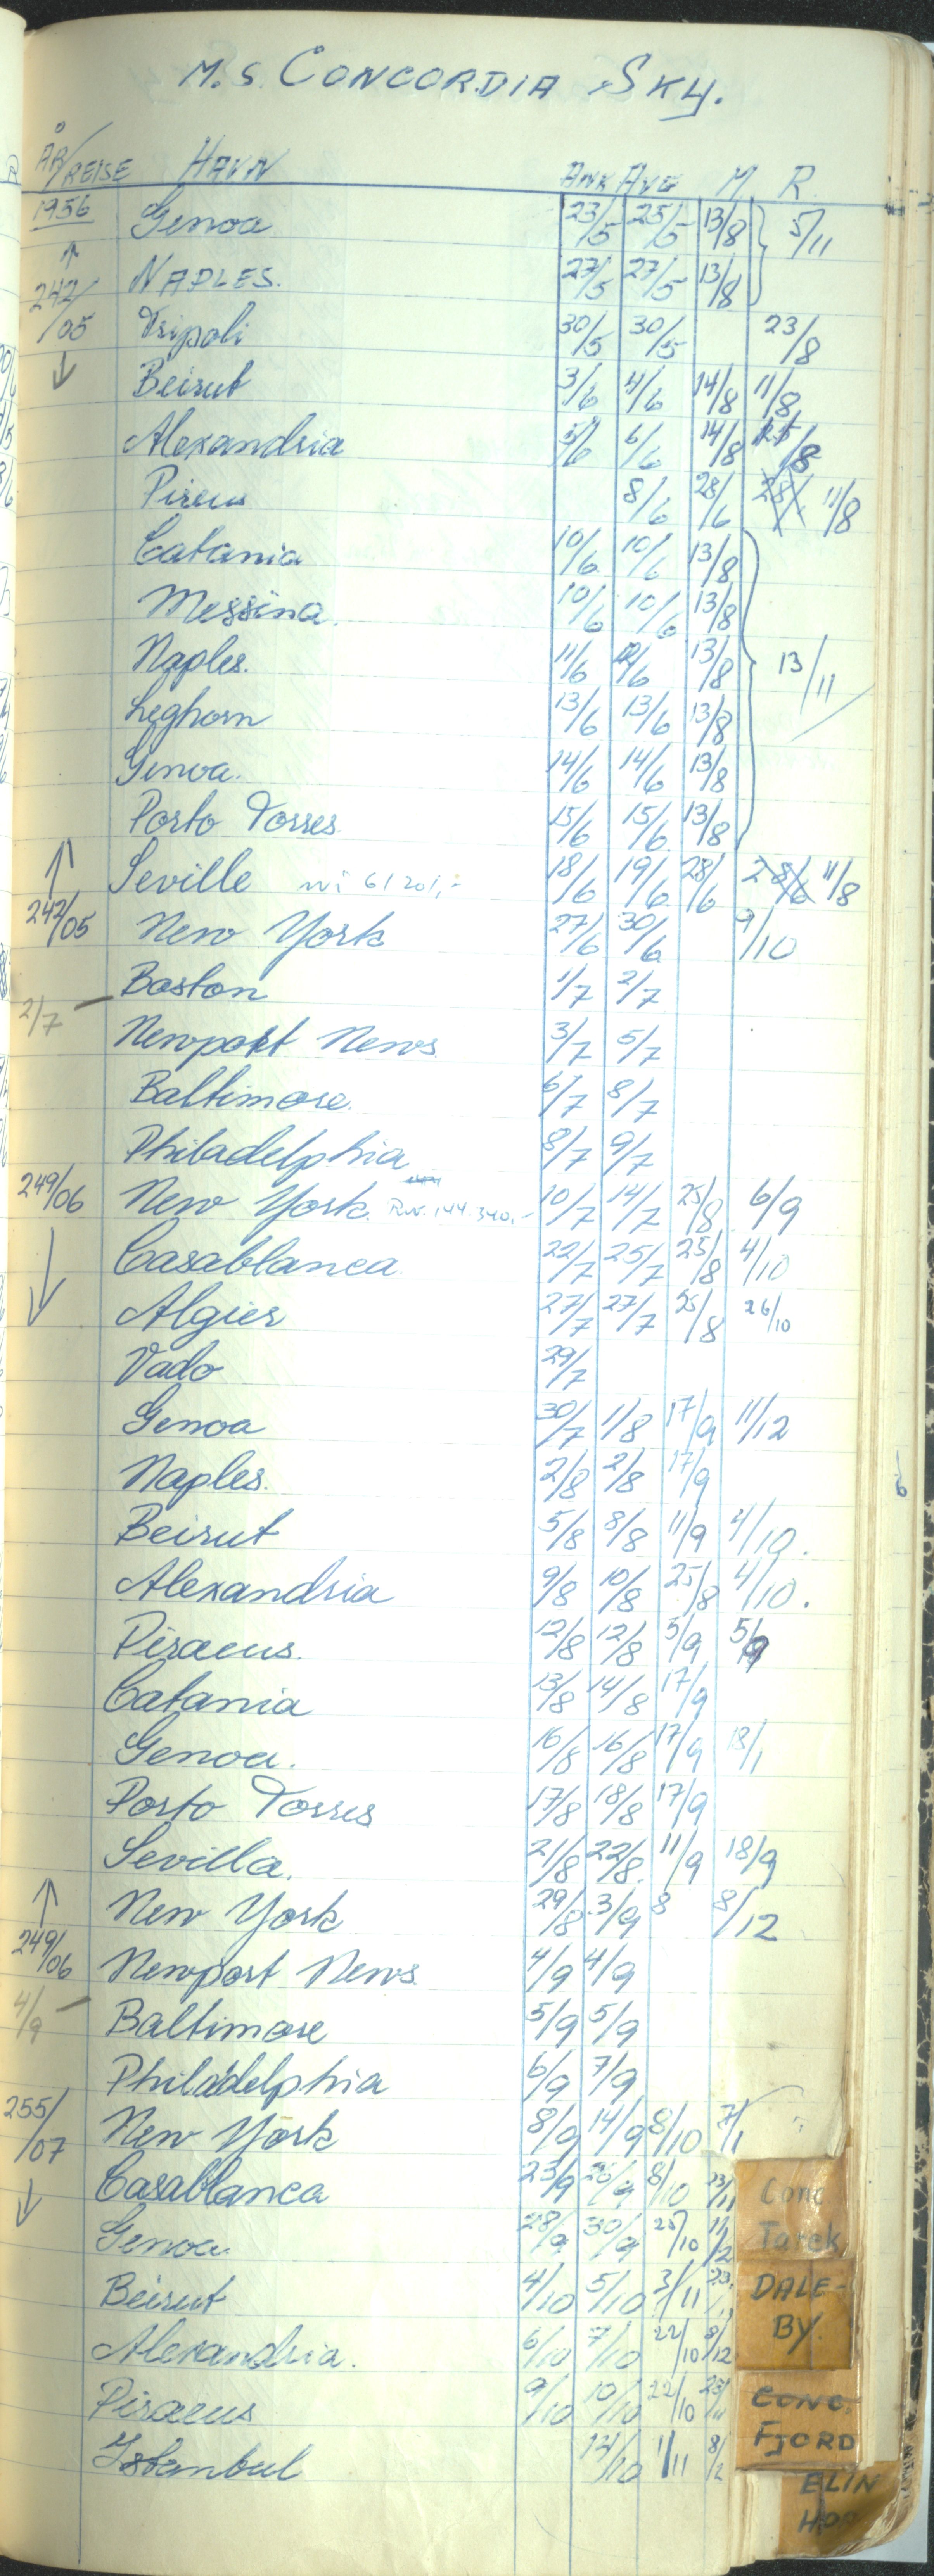 M.S. CONCORDIA SKY.
ÅR/REISE HAVN ANK AVG M. R.
1956 Genoa 23/5 25/5 13/8 5/11
↑ NAPLES. 27/5 27/5 13/8
242/05 Tripoli 30/5 30/5 23/8
↓ Beirut 3/6 4/6 14/8 11/8
Alexandria 5/6 6/6 14/8
Pireus 8/6 28/6 28/ 11/8
Catania 10/6 10/6 13/8
Messina. 10/6 10/6 13/8
Naples. 11/6 12/6 13/8 13/11
Leghorn 13/6 13/6 13/8
Genoa. 14/6 14/6 13/8
Porto Torres 15/6 15/6 13/8
↑ Seville 18/6 19/6 28/6 28/6 11/8
242/05 New York 27/6 30/6 9/10
Boston 1/7 2/7
2/7 — Newport News 3/7 5/7
Baltimore. 6/7 8/7
Philadelphia 8/7 9/7
249/06 New York. R.N. 144.340,- 10/7 14/7 25/8 6/9
↓ Casablanca 22/7 25/7 25/8 4/10
Algier 27/7 27/7 25/8 26/10
Vado 29/7
Genoa 30/7 1/8 17/9 11/12
Naples. 2/8 2/8 17/9
Beirut 5/8 8/8 11/9 4/10.
Alexandria 9/8 10/8 25/8 4/10.
Piraeus. 12/8 12/8 5/9 5/9
Catania 13/8 14/8 17/9
Genoa. 16/8 16/8 17/9 18/1
Porto Torres 17/8 18/8 17/9
Sevilla. 21/8 22/8. 11/9 18/9
↑ New York 29/8 3/9 8 8/12
249/06 Newport News 4/9 4/9
4/9 — Baltimore 5/9 5/9
Philadelphia 6/9 7/9
255/07 New York 8/9 14/9 8/10 7/1
↓ Casablanca 23/9 26/9 8/10 23/11
Genoa. 28/9 30/9 25/10 11/2
Beirut 4/10 5/10 3/11
Alexandria. 6/10 7/10 22/10 8/12
Piraeus 9/10 10/10 22/10
Istanbul 12/10 1/11 8/2
Conc.
Tarek
DALE-
BY.
CONC.
FJORD
ELIN
HOR